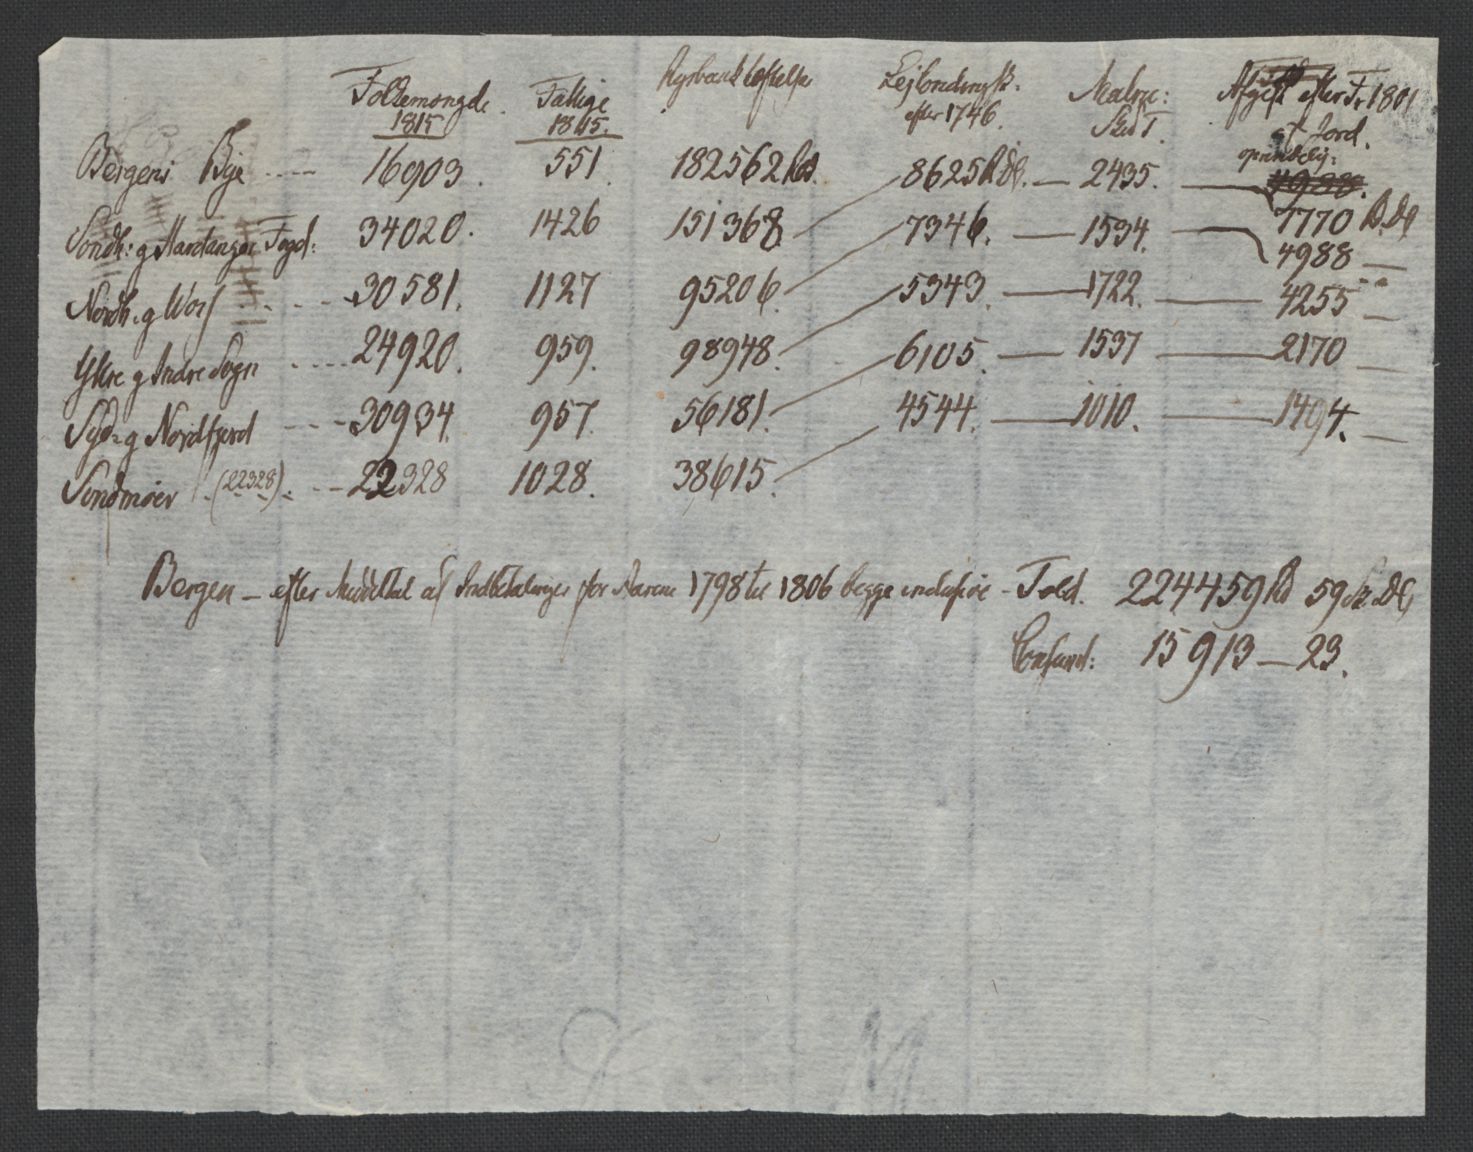 Folkemængde. Fattige Rigsbankhæftelse Lejlændingsk. Matric: Afgift efter Fr 1801
1815 1815. efter 1746. Skat af Jord.
oprindelig:
Bergens Bye ---- 16903. 551. 182562 Rd. 8625 Rd. — 2435. — 4988.
7770 R. DC
Söndh: g Hardanger Fogd: 34020. 1426 151368 7346. — 1534. — 4988 —
Nordh. g Woss ---- 30581. 1127 95206. 5343. — 1722. — 4255 —
Yttre g Indre Sogn ---- 24920. 959. 98948. 6105. — 1537 — 2170 —
Syd- g Nordfjord --- 30934. 957. 56181. 4544. — 1010. — 1494. —
Söndmöer (22328). -- 22328 1028. 38615.
Bergen — efter Middeltal af Indbetalninger for Aarene 1798 til 1806 begge inclusive - Told. 224459 Rd 59 sk. DC
Consumt: 15913 — 23.